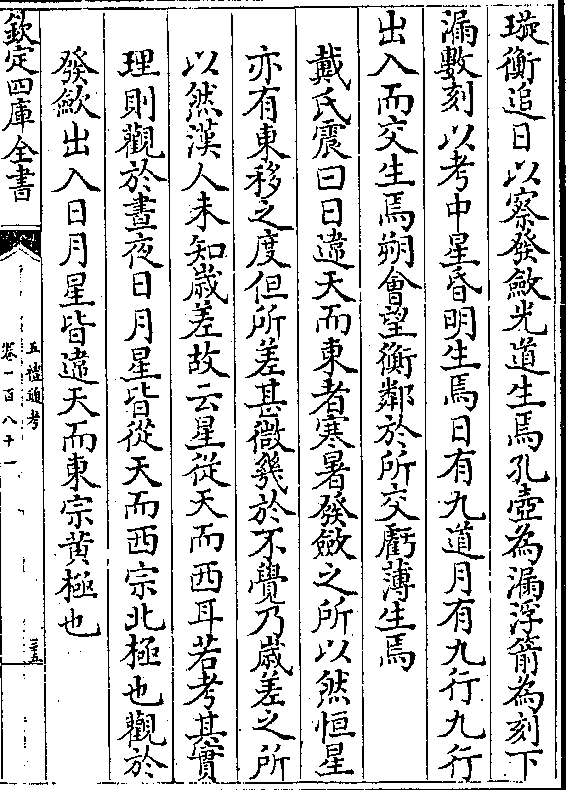 璇衡追日以察發斂光道生焉孔壺為漏浮箭為刻下
漏數刻以考中星昏明生焉日有九道月有九行九行
出入而交生焉朔會望衡鄰於所交虧薄生焉
戴氏震曰日違天而東者寒暑發斂之所以然恒星
亦有東移之度但所差甚微幾於不覺乃歲差之所
以然漢人未知歲差故云星從天而西耳若考其實
理則觀於晝夜日月星皆從天而西宗北極也觀於
發斂出入日月星皆違天而東宗黃極也
欽定四庫全書
五禮通考
卷一百八十一
三五